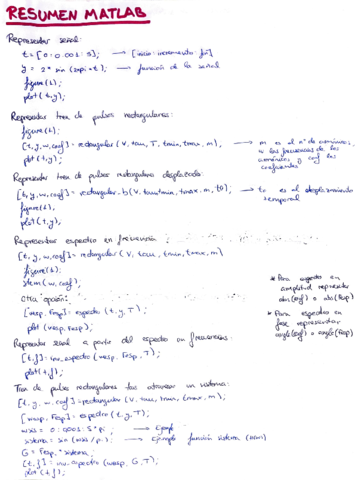 RESUMEN MATLAB
Representar señal:
t = [0:0.001:5]; → [inicio:incremento:fin]
y = 2* sin (2*pi*t); → función de la señal
figure(1);
plot(t,y);
Representar tren de pulsos rectangulares:
figure(1);
[t, y, w, coef] = rectangular (V, tau, T, tmin, tmax, m), → m es el nº de armónicos,
w las frecuencias de los
armónicos y coef los
coeficientes
plot(t,y);
Representar tren de pulsos rectangulares desplazado:
[t, y, w, coef] = rectangular_b(V, tau, tmin, tmax, m, t0); → to es el desplazamiento
temporal
figure(1),
plot(t,y),
Representar espectro en frecuencia:
[t, y, w, coef] = rectangular (V, tau, tmin, tmax, m)
figure(1);
stem(w, coef);
Otra opción:
[wesp, Fesp] = espectro (t, y, T);
plot (wesp, Fesp);
* Para espectro en
amplitud representar
abs(coef) o abs(Fesp)
* Para espectro en
fase representar
angle(coef) o angle(Fesp)
Representar señal a partir del espectro en frecuencias:
[t,f] = inv_espectro (wesp, Fesp, T);
plot(t,f);
Tren de pulsos rectangulares tras atravesar un sistema:
[t, y, w, coef] = rectangular (V, tau, tmin, tmax, m);
[wesp, Fesp] = espectro (t, y, T);
wsis = 0:0.001:5*pi; → Ejemplo
sistema = sin (wsis/pi); → Ejemplo función sistema
G = Fesp.* sistema;
[t,f] = inv_espectro (wesp, G, T);
plot (t,f);